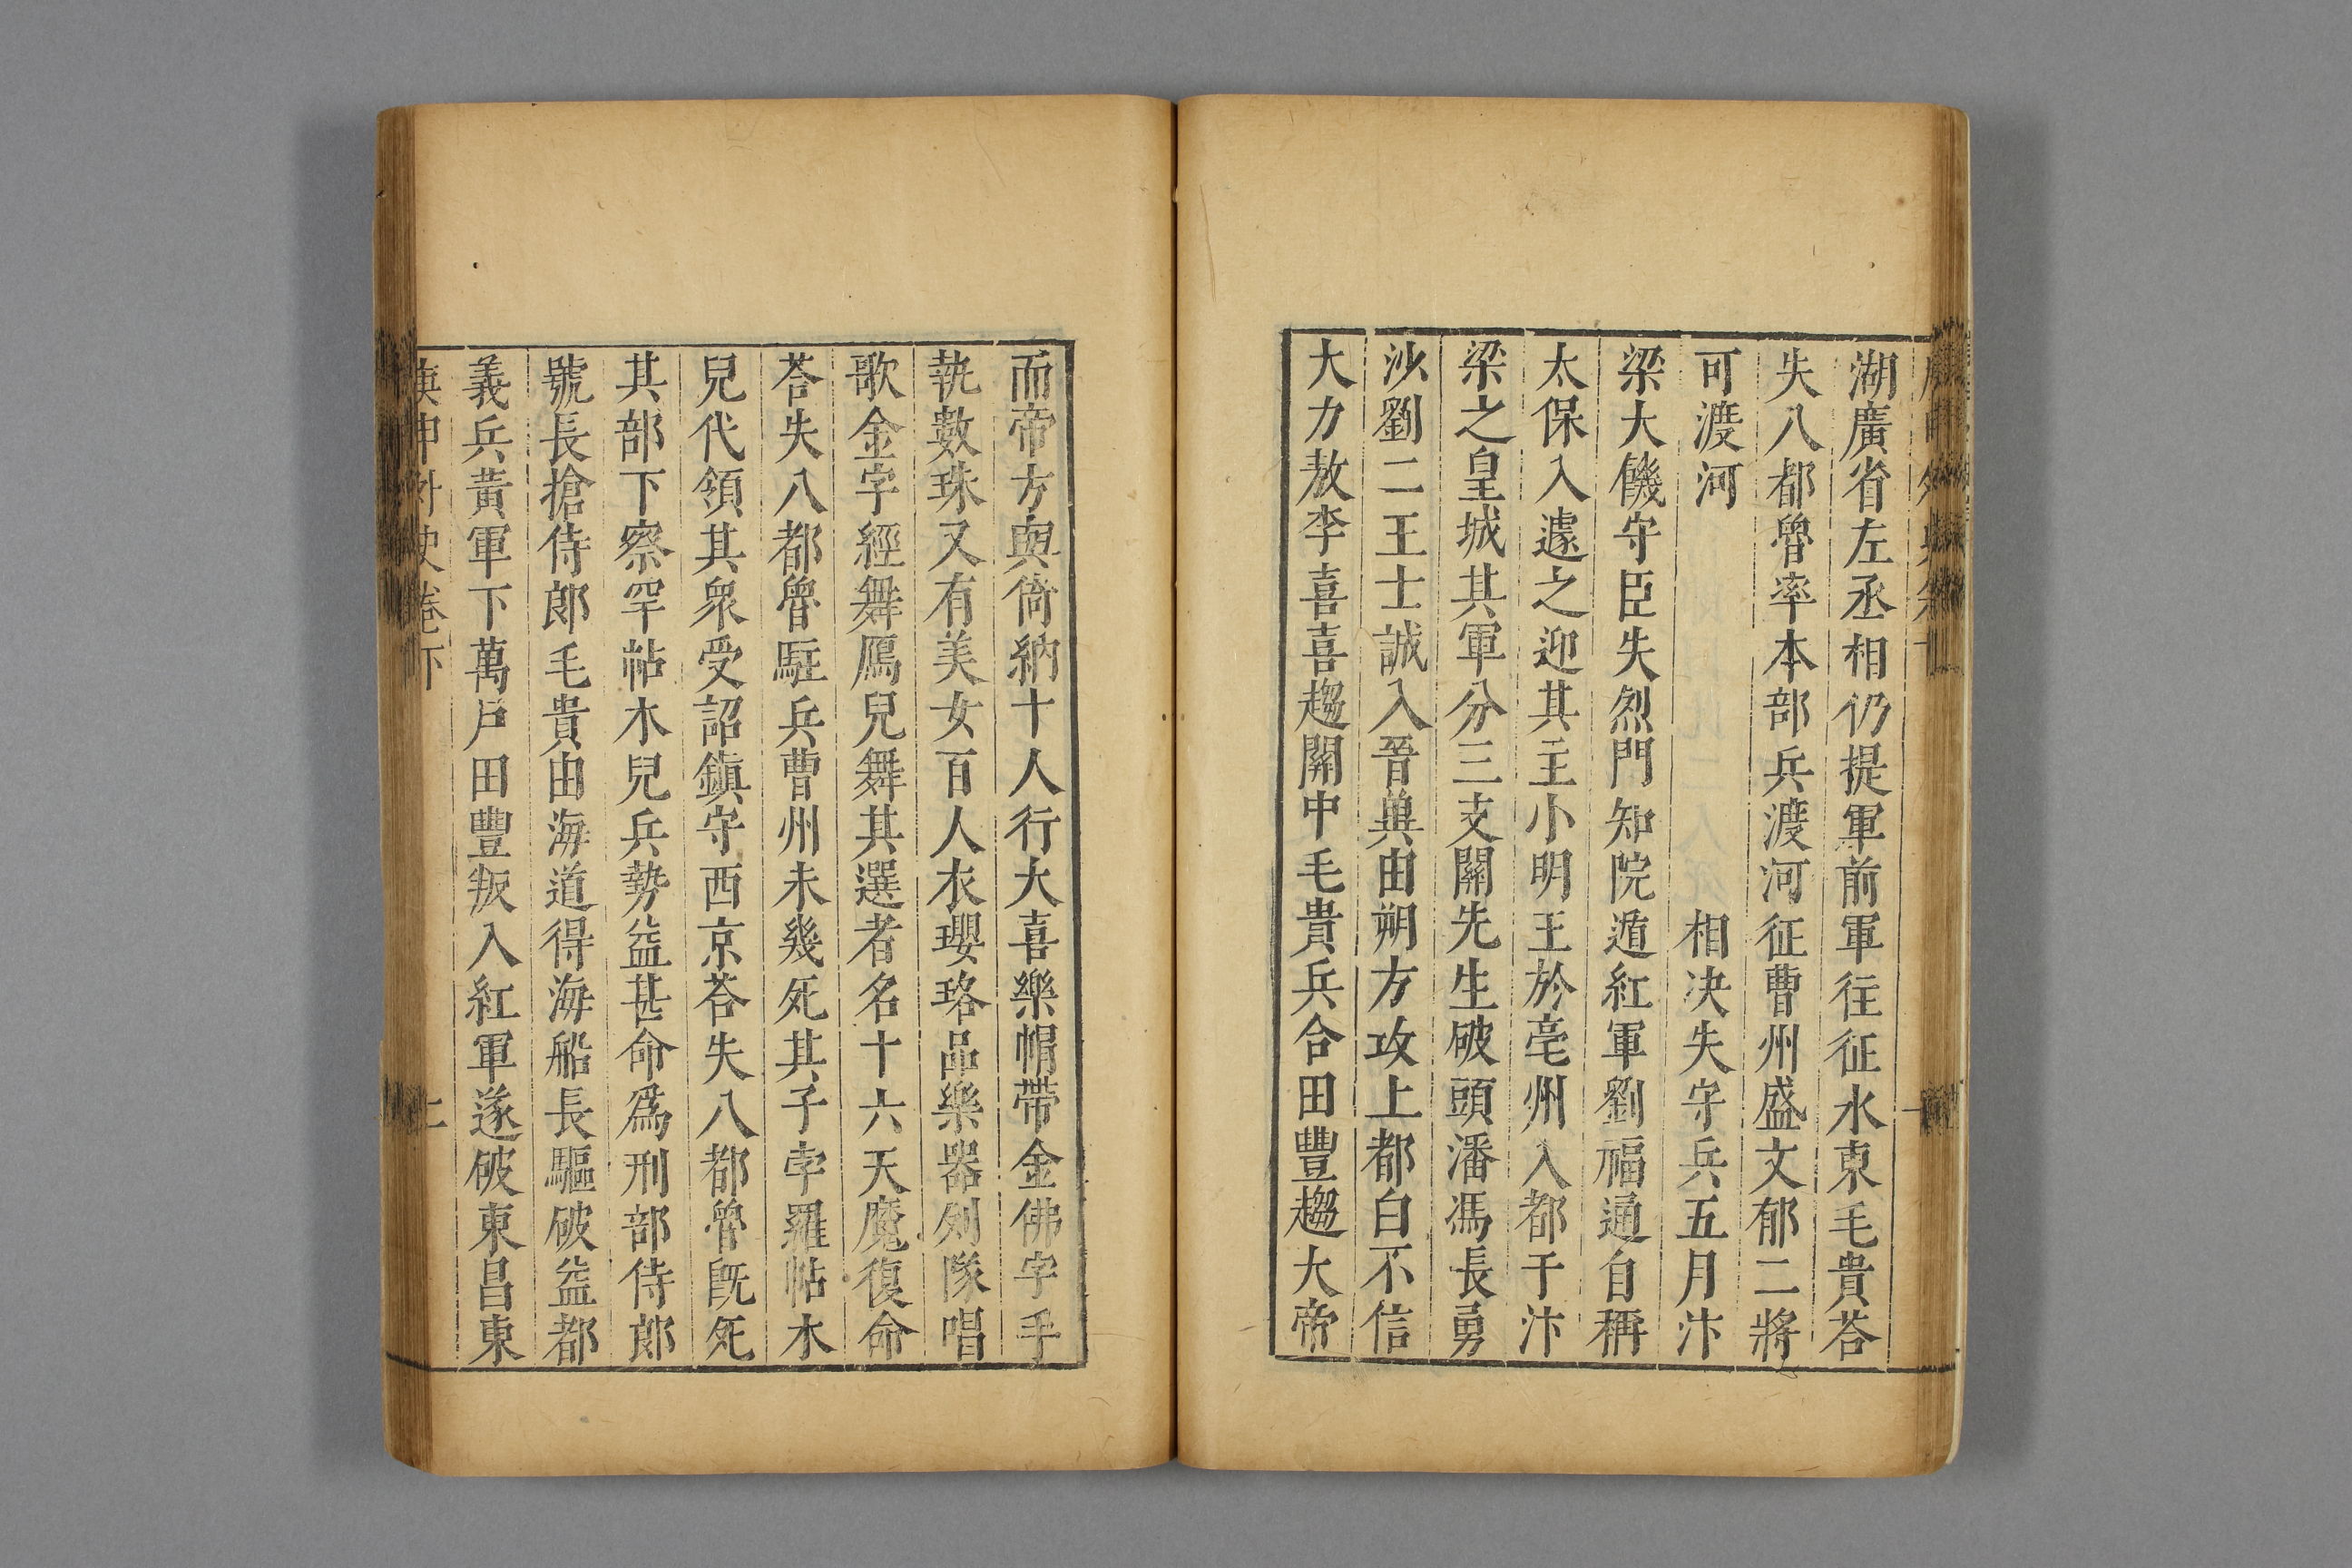 湖廣省左丞相仍提軍前軍往征水東毛貴荅
失八都魯率本部兵渡河征曹州盛文郁二將
可渡河 相决失守兵五月汴
梁大饑守臣失烈門知院遁紅軍劉福通自稱
太保入遽之迎其主小明王於亳州入都于汴
梁之皇城其軍分三支關先生破頭潘馮長勇
沙劉二王士誠入晉兾由朔方攻上都白不信
大力敖李喜喜趨關中毛貴兵合田豐趨大帝
而帝方與倚納十人行大喜樂帽帶金佛字手
執數珠又有美女百人衣瓔珞品樂器列隊唱
歌金字經舞鴈兒舞其選者名十六天魔復命
荅失八都魯駐兵曹州未幾死其子孛羅帖木
兒代領其衆受詔鎮守西京荅失八都魯旣死
其部下察罕帖木兒兵勢益甚命爲刑部侍郎
號長搶侍郎毛貴由海道得海船長驅破益都
義兵黃軍下萬戶田豐叛入紅軍遂破東昌東
庚申外史卷下